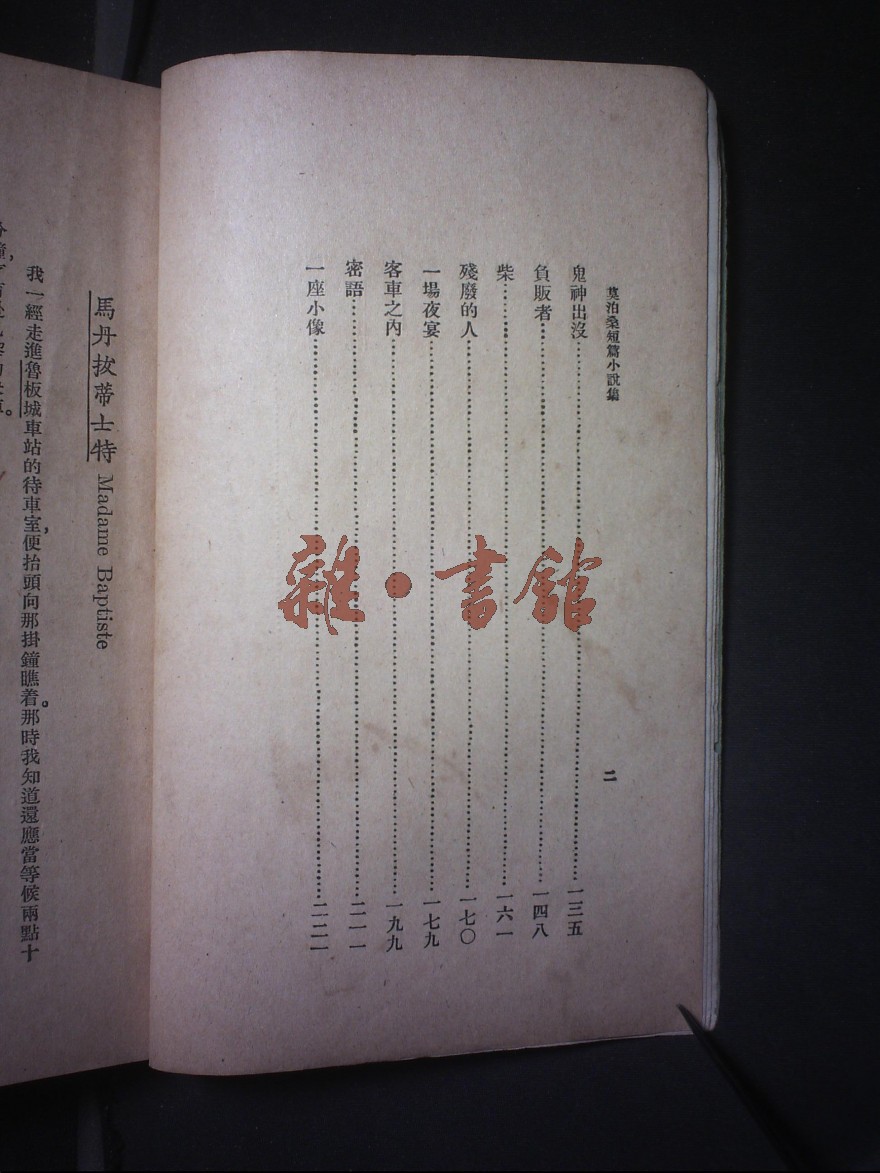 莫泊桑短篇小說集
二
鬼神出沒……一三五
負販者……一四八
柴……一六一
殘廢的人……一七〇
一場夜宴……一七九
客車之內……一九九
密語……二一一
一座小像……二二一
雜·書館
馬丹拔蒂士特 Madame Baptiste
我一經走進魯板城車站的待車室，便抬頭向那掛鐘瞧着。那時我知道還應當等候兩點十